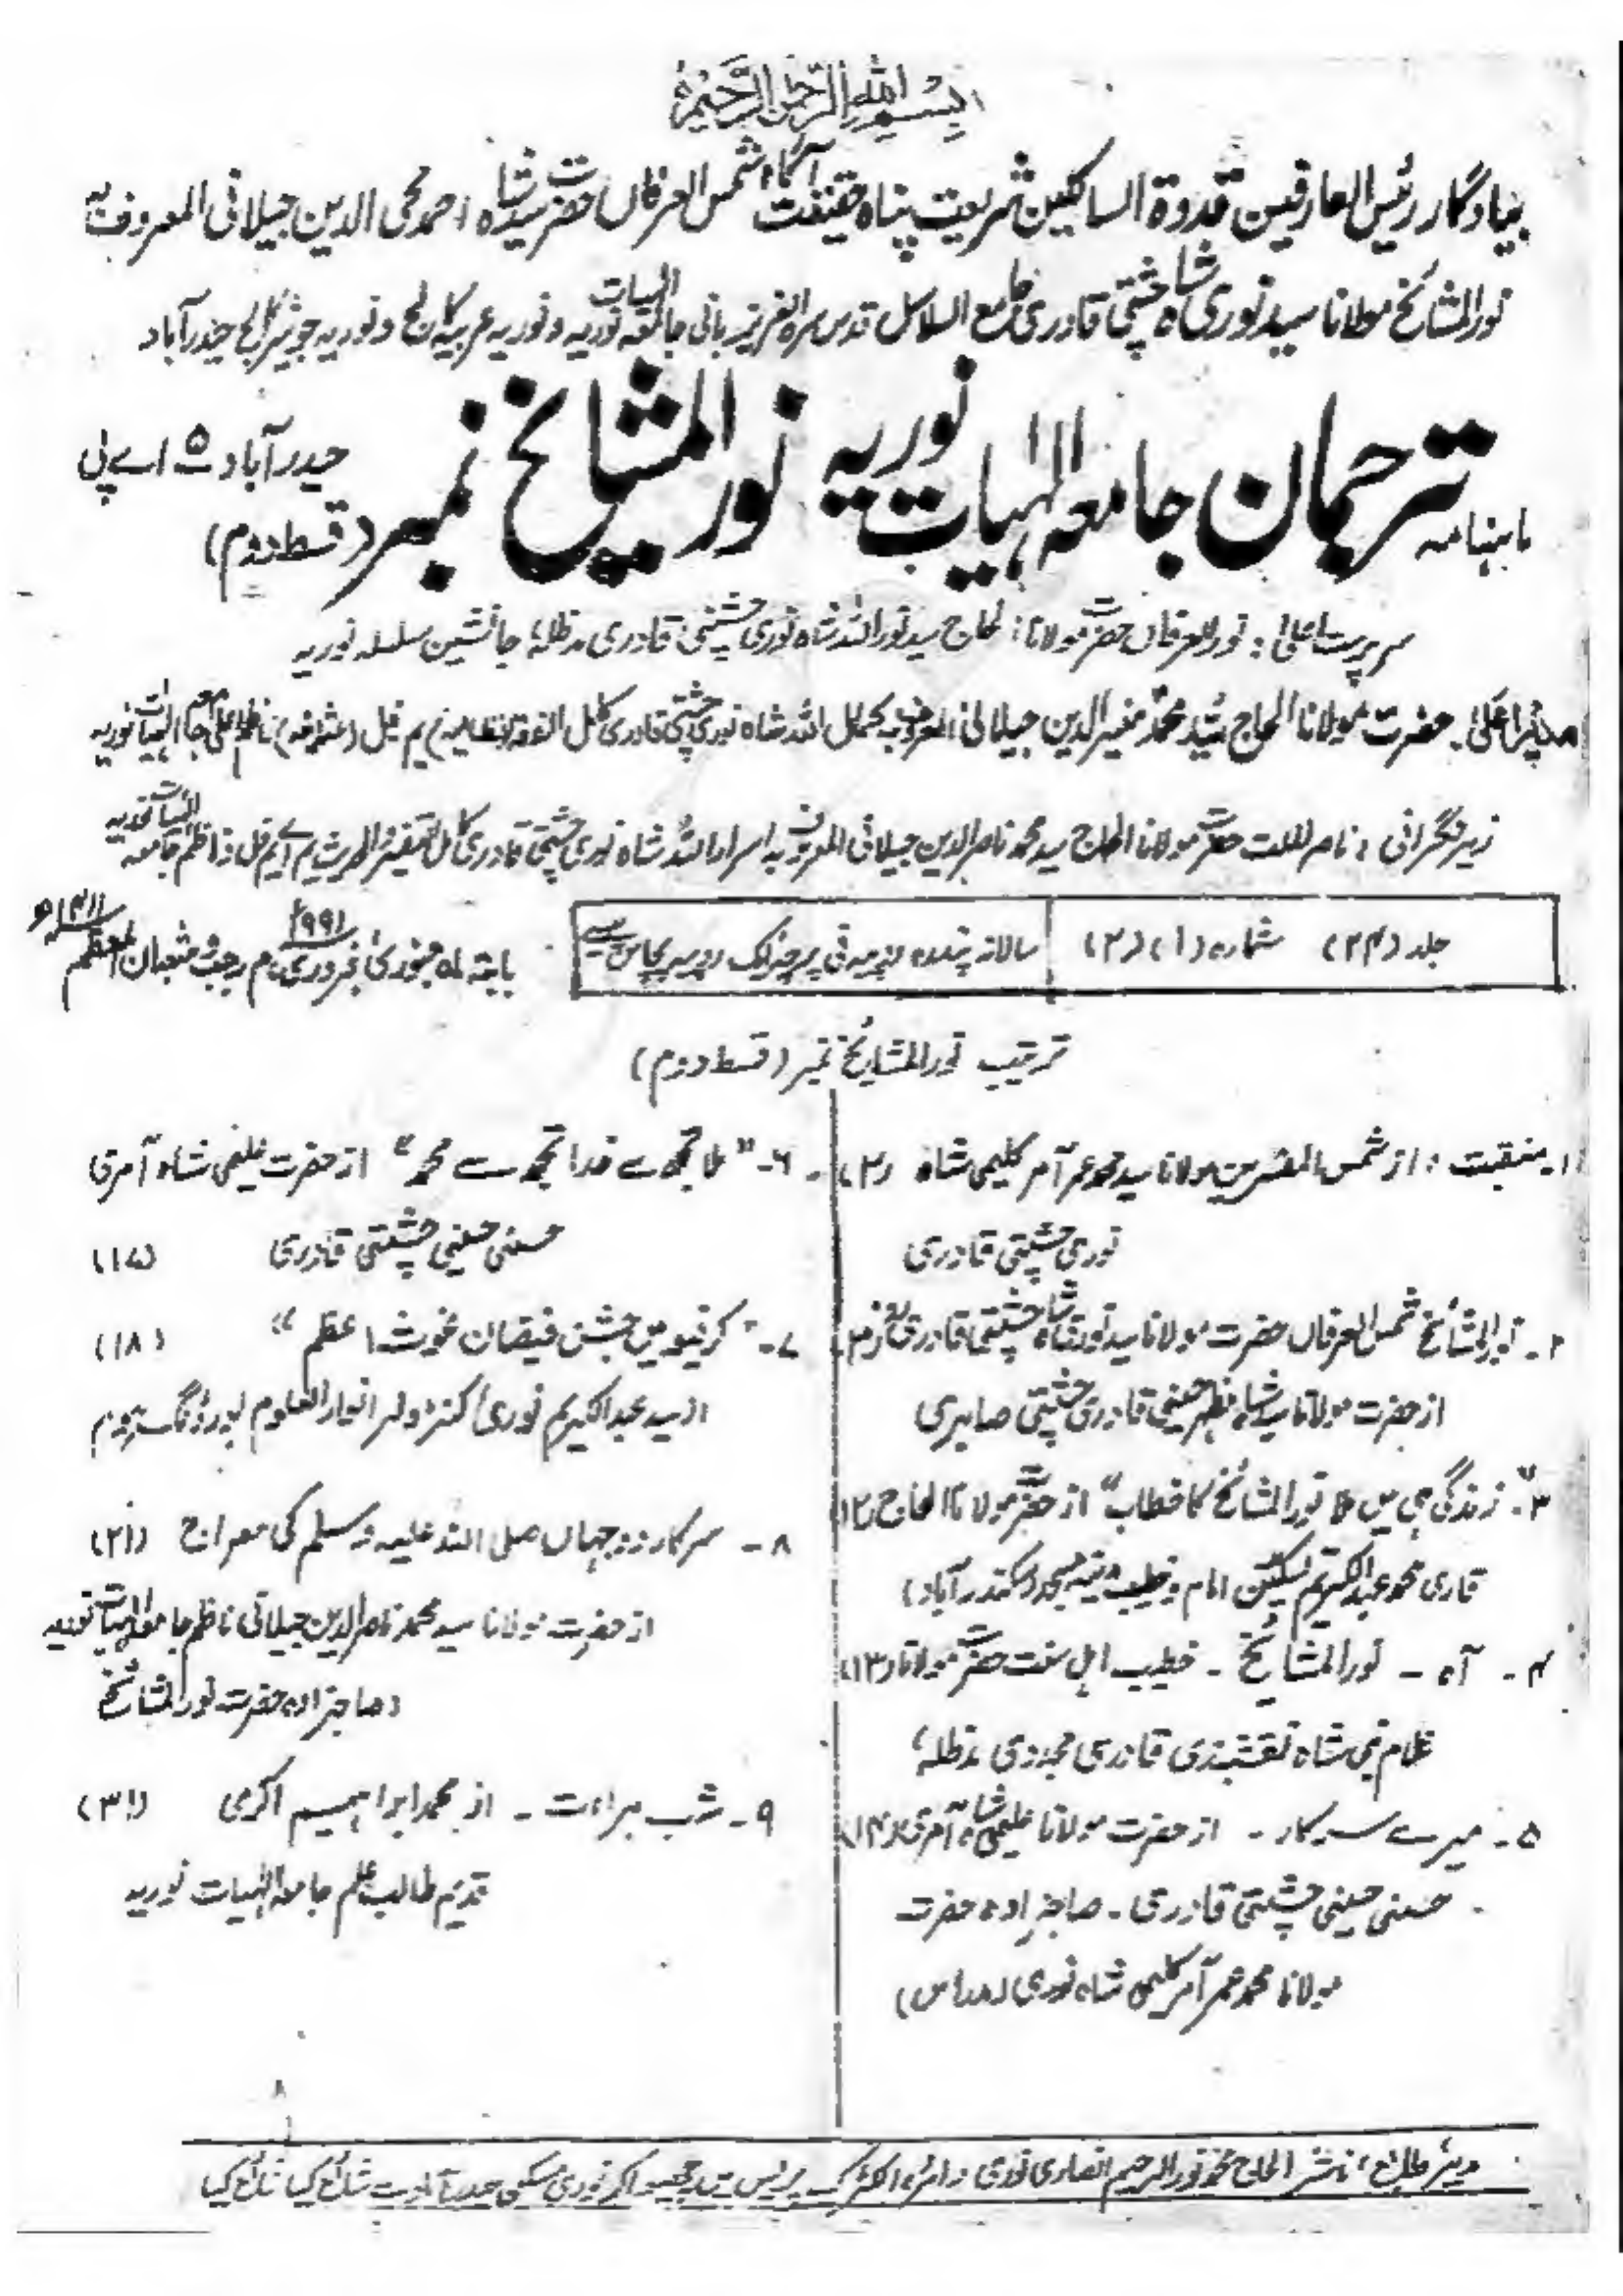 بسم اللہ الرحمن الرحیم
بیادگار رئیس العارفین قدوۃ السالکین شریعت پناہ حقیقت آگاہ شمس العرفاں حضرت سید شاہ احمد محی الدین جیلانی المعروف بہ
نور المشائخ مولانا سید نوری شاہ چشتی قادری جامع السلاسل قدس سرہ العزیز بانی جامعہ الہیات نوریہ و نوریہ عربیہ کالج و نوریہ جونیر کالج حیدرآباد
ماہنامہ ترجمان جامعہ الہیات نوریہ نور المشائخ نمبر (قسط دوم) حیدرآباد ۵ اے پی
سرپرست اعلیٰ : نور العرفاں حضرت مولانا الحاج سید نور اللہ شاہ نوری چشتی قادری مدظلہ، جانشین سلسلہ نوریہ
مدیر اعلیٰ۔ حضرت مولانا الحاج سید محمد منیر الدین جیلانی المعروف بہ کمال اللہ شاہ نوری چشتی قادری کامل الفقہ (نظامیہ) یم فل (عثمانیہ) ناظم اعلیٰ جامعہ الہیات نوریہ
زیر نگرانی : ناصر الملت حضرت مولانا الحاج سید محمد ناصر الدین جیلانی المعروف بہ اسرار اللہ شاہ نوری چشتی قادری کامل التفسیر الحدیث یم اے ایم فل ناظم جامعہ الہیات نوریہ
جلد (۲۴) شمارہ (۱) (۲) سالانہ پندرہ روپیہ فی پرچہ ایک روپیہ پچاس پیسے
بابتہ ماہ جنوری، فروری ۱۹۹۱ م رجب، شعبان المعظم ۱۴۱۱ھ
ترتیب نور المشائخ نمبر (قسط دوم)
۱۔ منقبت : از شمس المفسرین مولانا سید محمد عمر آمر کلیمی شاہ (۲)
نوری چشتی قادری
۲۔ نور المشائخ شمس العرفاں حضرت مولانا سید نوری شاہ چشتی قادری (۳)
از حضرت مولانا سید شاہ مظہر حسینی قادری چشتی صابری
۳۔ "زندگی ہی میں ملا نور المشائخ کا خطاب" از حضرت مولانا الحاج (۱۲)
قاری محمد عبدالکریم تسکین امام و خطیب مدینہ مسجد (سکندرآباد)
۴۔ آہ ۔ نور المشائخ ۔ خطیب اہل سنت حضرت مولانا (۱۳)
غلام نبی شاہ نقشبندی قادری مجددی مدظلہ،
۵۔ میرے سرکار ۔ از حضرت مولانا فہمی شاہ آمری (۱۴)
حسنی حسینی چشتی قادری ۔ صاحبزادہ حضرت
مولانا محمد عمر آمر کلیمی شاہ نوری (مدراس)
۶۔ "ملا تجھ سے خدا تجھ سے محمد" از حضرت فہمی شاہ آمری
حسنی حسینی چشتی قادری (۱۷)
۷۔ "کرفیو میں جشن فیضان غوث اعظم" (۱۸)
از سید عبدالکریم نوری کنٹرولر انوار العلوم
۸۔ سرکار دو جہاں صلی اللہ علیہ وسلم کی معراج (۲۱)
از حضرت مولانا سید محمد ناصر الدین جیلانی ناظم جامعہ الہیات نوریہ
(صاحبزادہ حضرت نور المشائخ
۹۔ شب براءت ۔ از محمد ابراہیم اکرمی (۳۱)
قدیم طالب علم جامعہ الہیات نوریہ
ناشر الحاج محمد نور الرحیم انصاری نوری دائرہ الکٹرک پریس میں چھپوا کر نوری چمن حیدرآباد سے شائع کیا